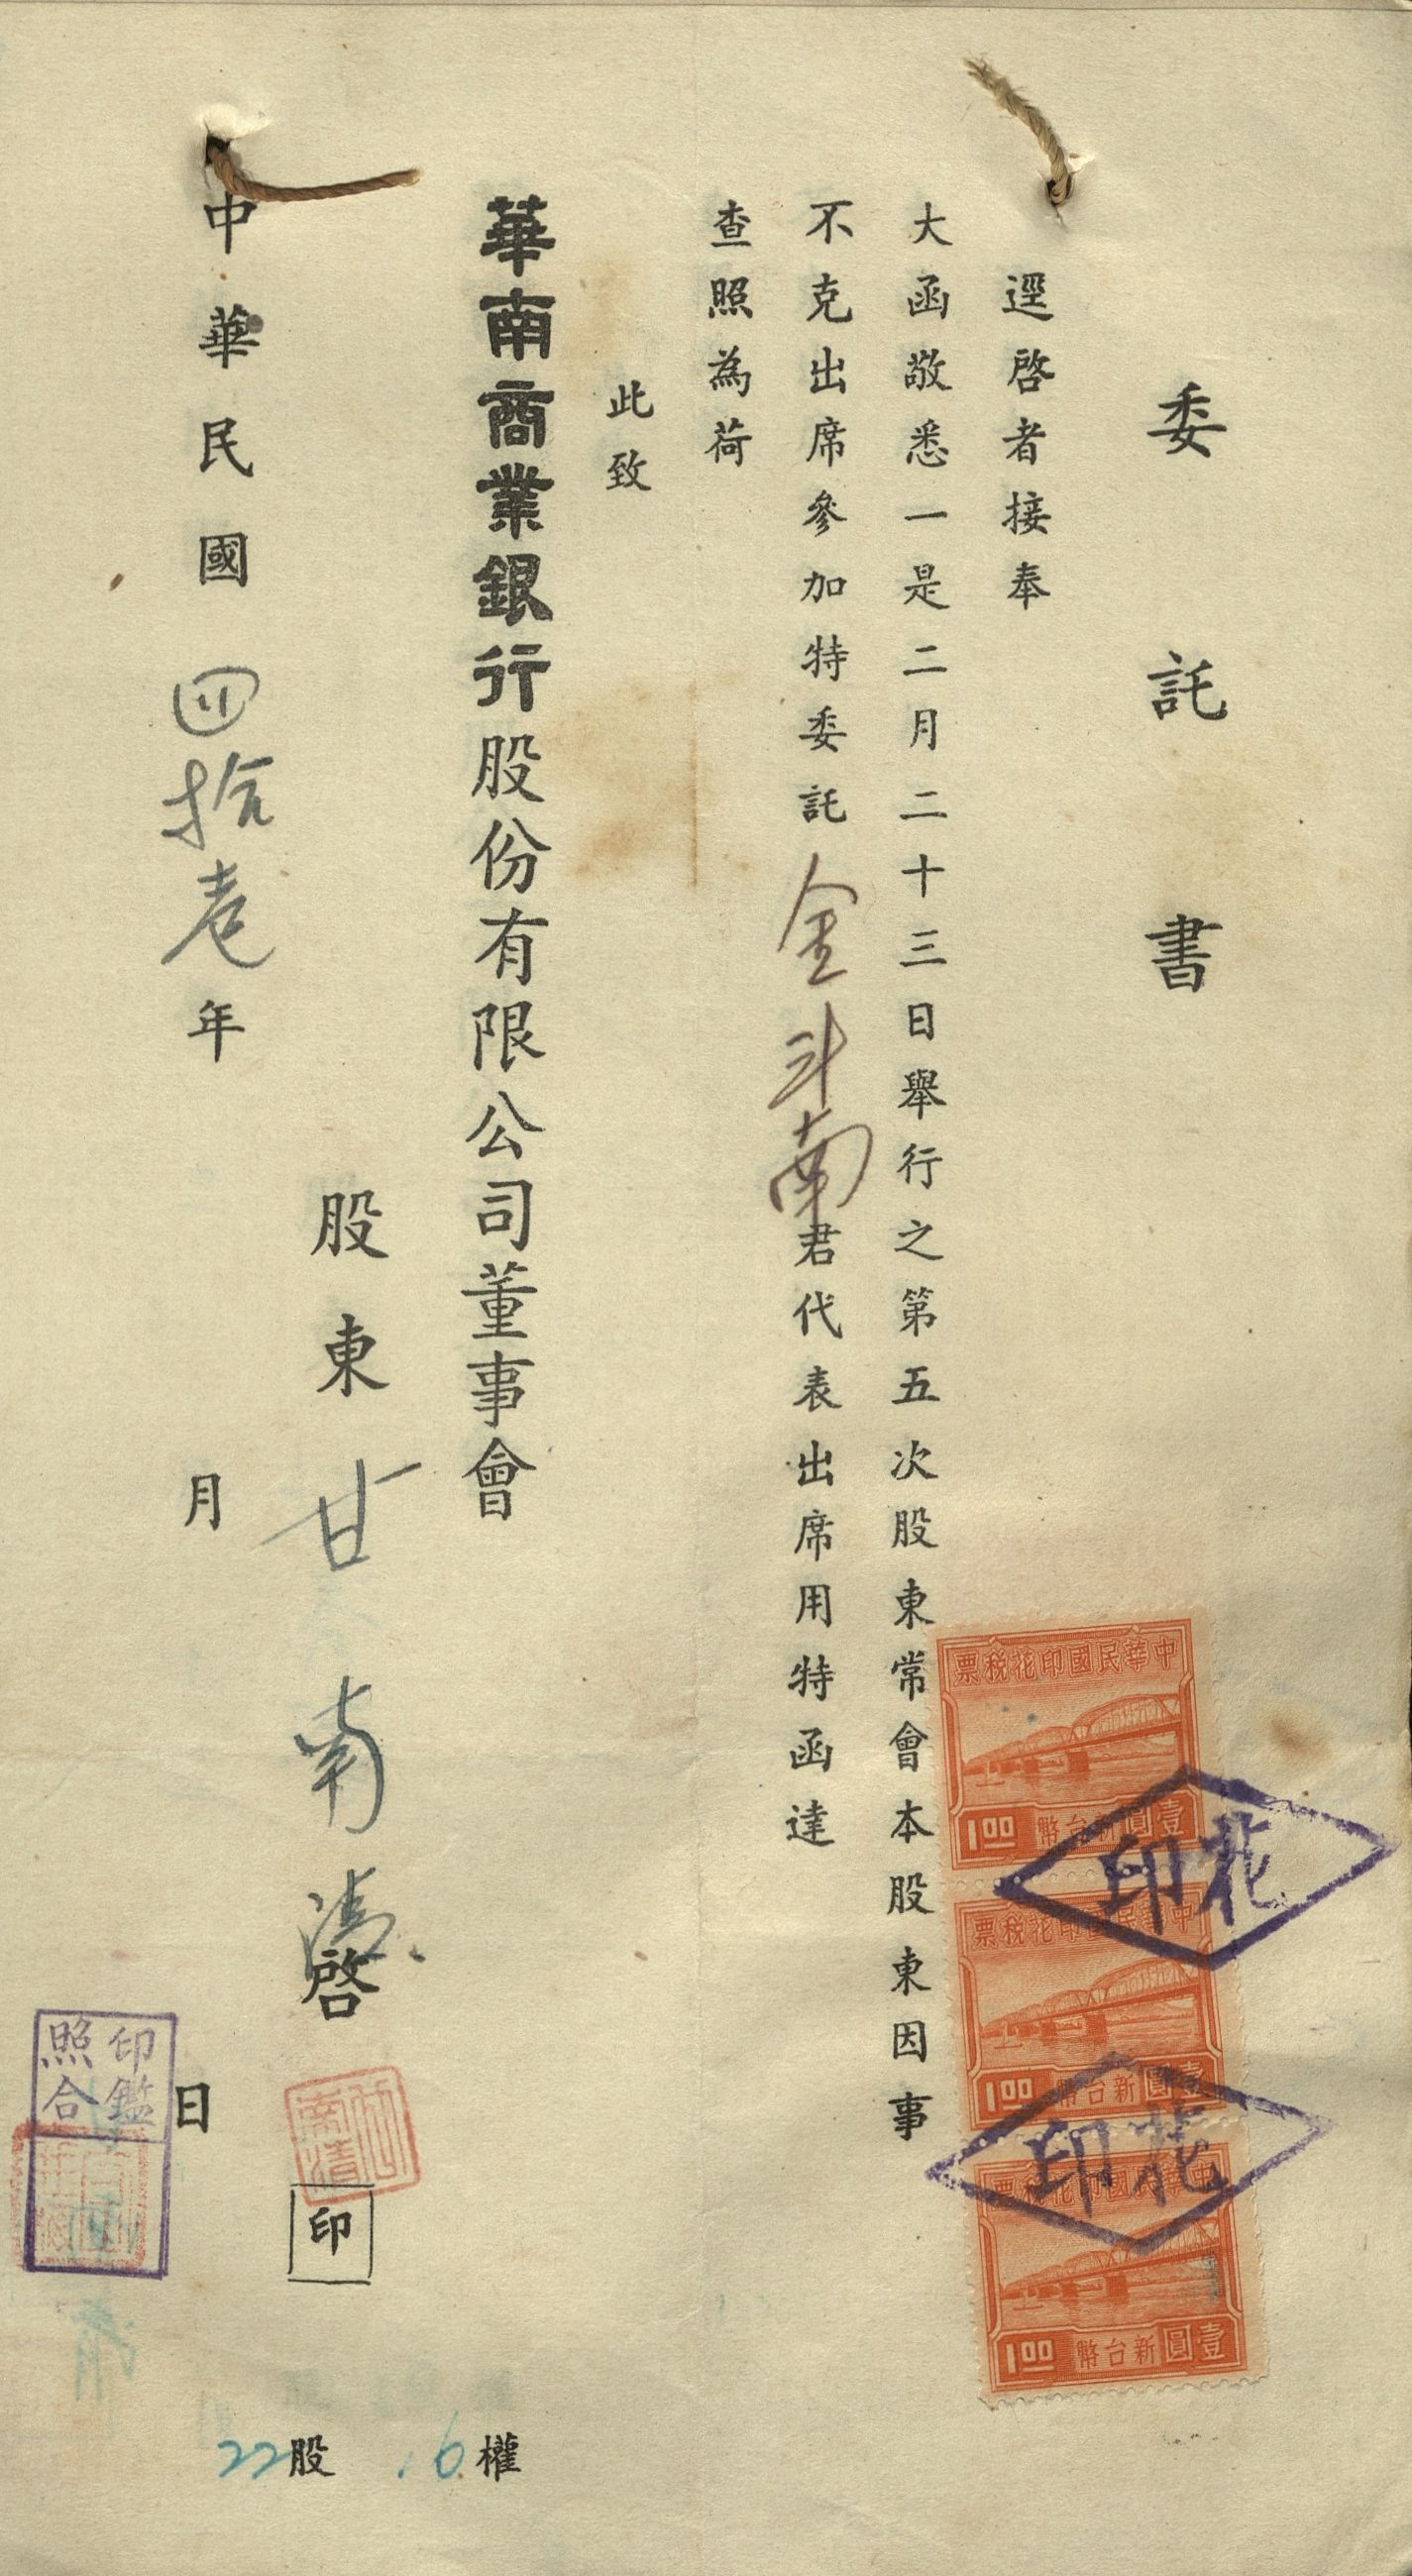 委託書
逕啓者接奉
大函敬悉一是二月二十三日舉行之第五次股東常會本股東因事
不克出席參加特委託金斗南君代表出席用特函達
查照為荷
此致
華南商業銀行股份有限公司董事會
股東 甘南清 啓 印
中華民國四拾壱年 月 日
22股 16權
中華民國印花稅票
壹圓新台幣 1.00
中華民國印花稅票
壹圓新台幣 1.00
中華民國印花稅票
壹圓新台幣 1.00
花印
花印
印鑑
照合